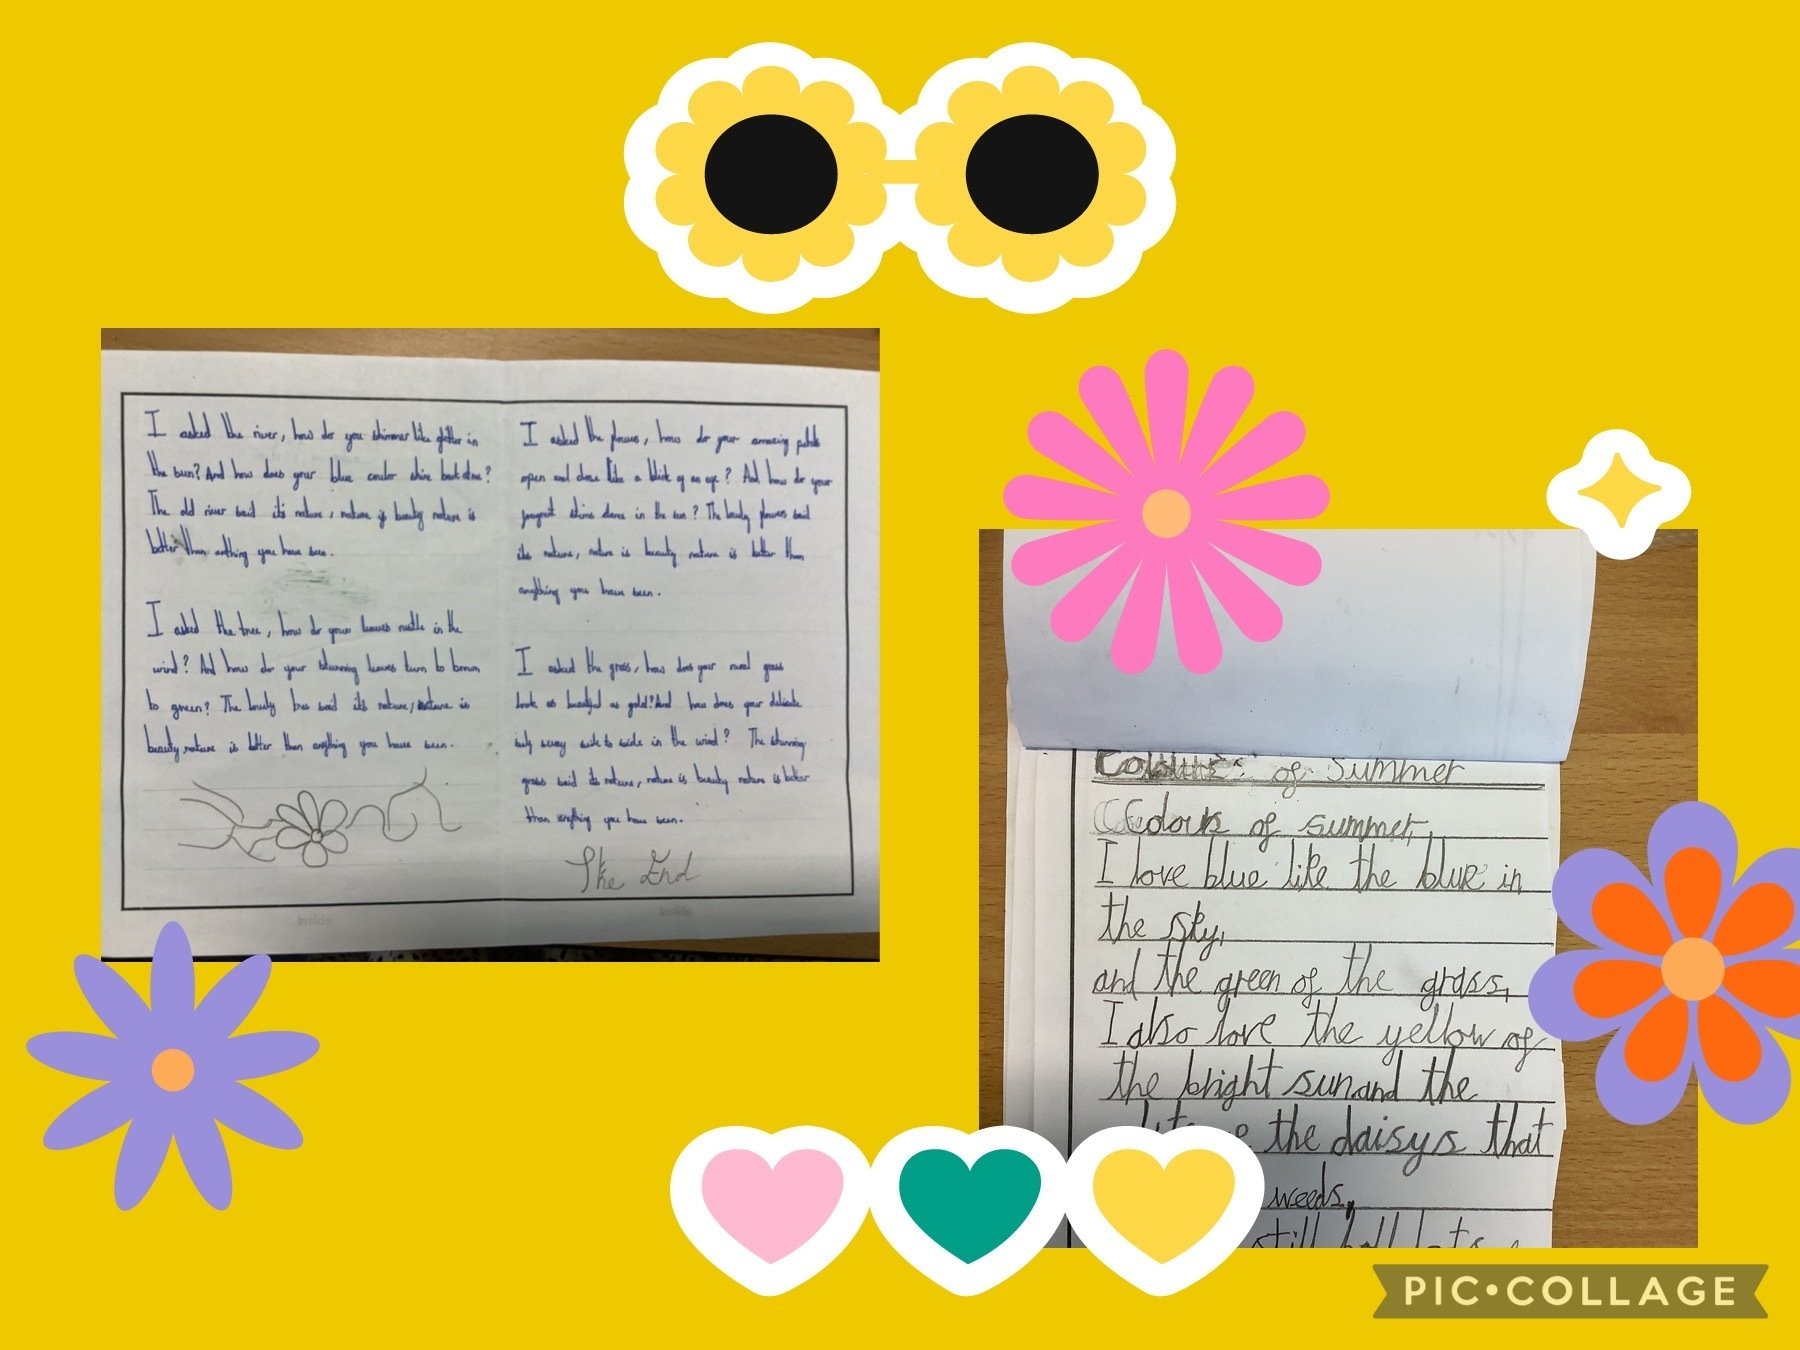 I asked the river, how do you shimmer like glitter in
the sun? And how does your blue coulor shine back at me?
The old river said it's nature, nature is beauty nature is
better than anthing you have seen.
I asked the tree, how do your leaves rustle in the
wind? And how do your stunning leaves turn to brown
to green? The lovely tree said it's nature, nature is
beauty, nature is better than anything you have seen.
The End
I asked the flowers, how do your amazing petals
open and close like a blink of an eye? And how do your
stems dance in the sun? The lovely flowers said
its nature, nature is beauty nature is better than
anything you have seen.
I asked the grass, how does your grass
look as beautiful as gold? And how does your delicate
sway side to side in the wind? The stunning
grass said its nature, nature is beauty nature is better
than anything you have seen.
inside
inside
Colours of Summer
Colours of summer,
I love blue like the blue in
the sky,
and the green of the grass,
I also love the yellow of
the bright sun and the
the daisys that
weeds,
still
PIC•COLLAGE